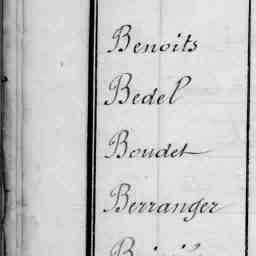 Benoits
Bedel
Boudet
Berranger